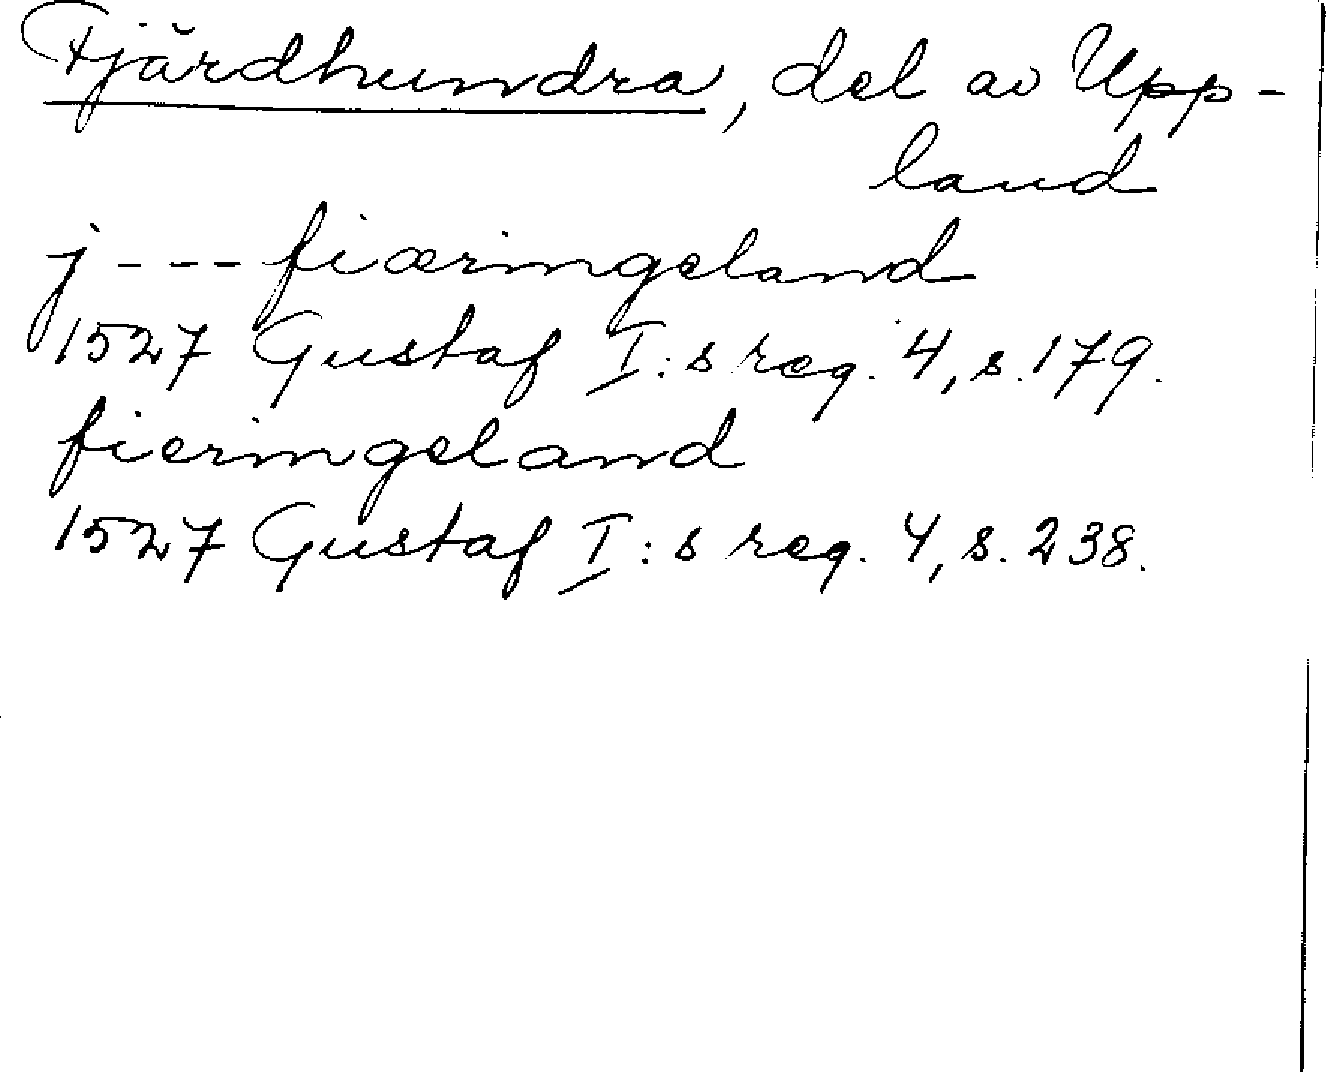 Fjärdhundra, del av Upp-
land
j --- fiæringeland
1527 Gustaf I:s reg. 4, s. 179.
fieringeland
1527 Gustaf I:s reg. 4, s. 238.